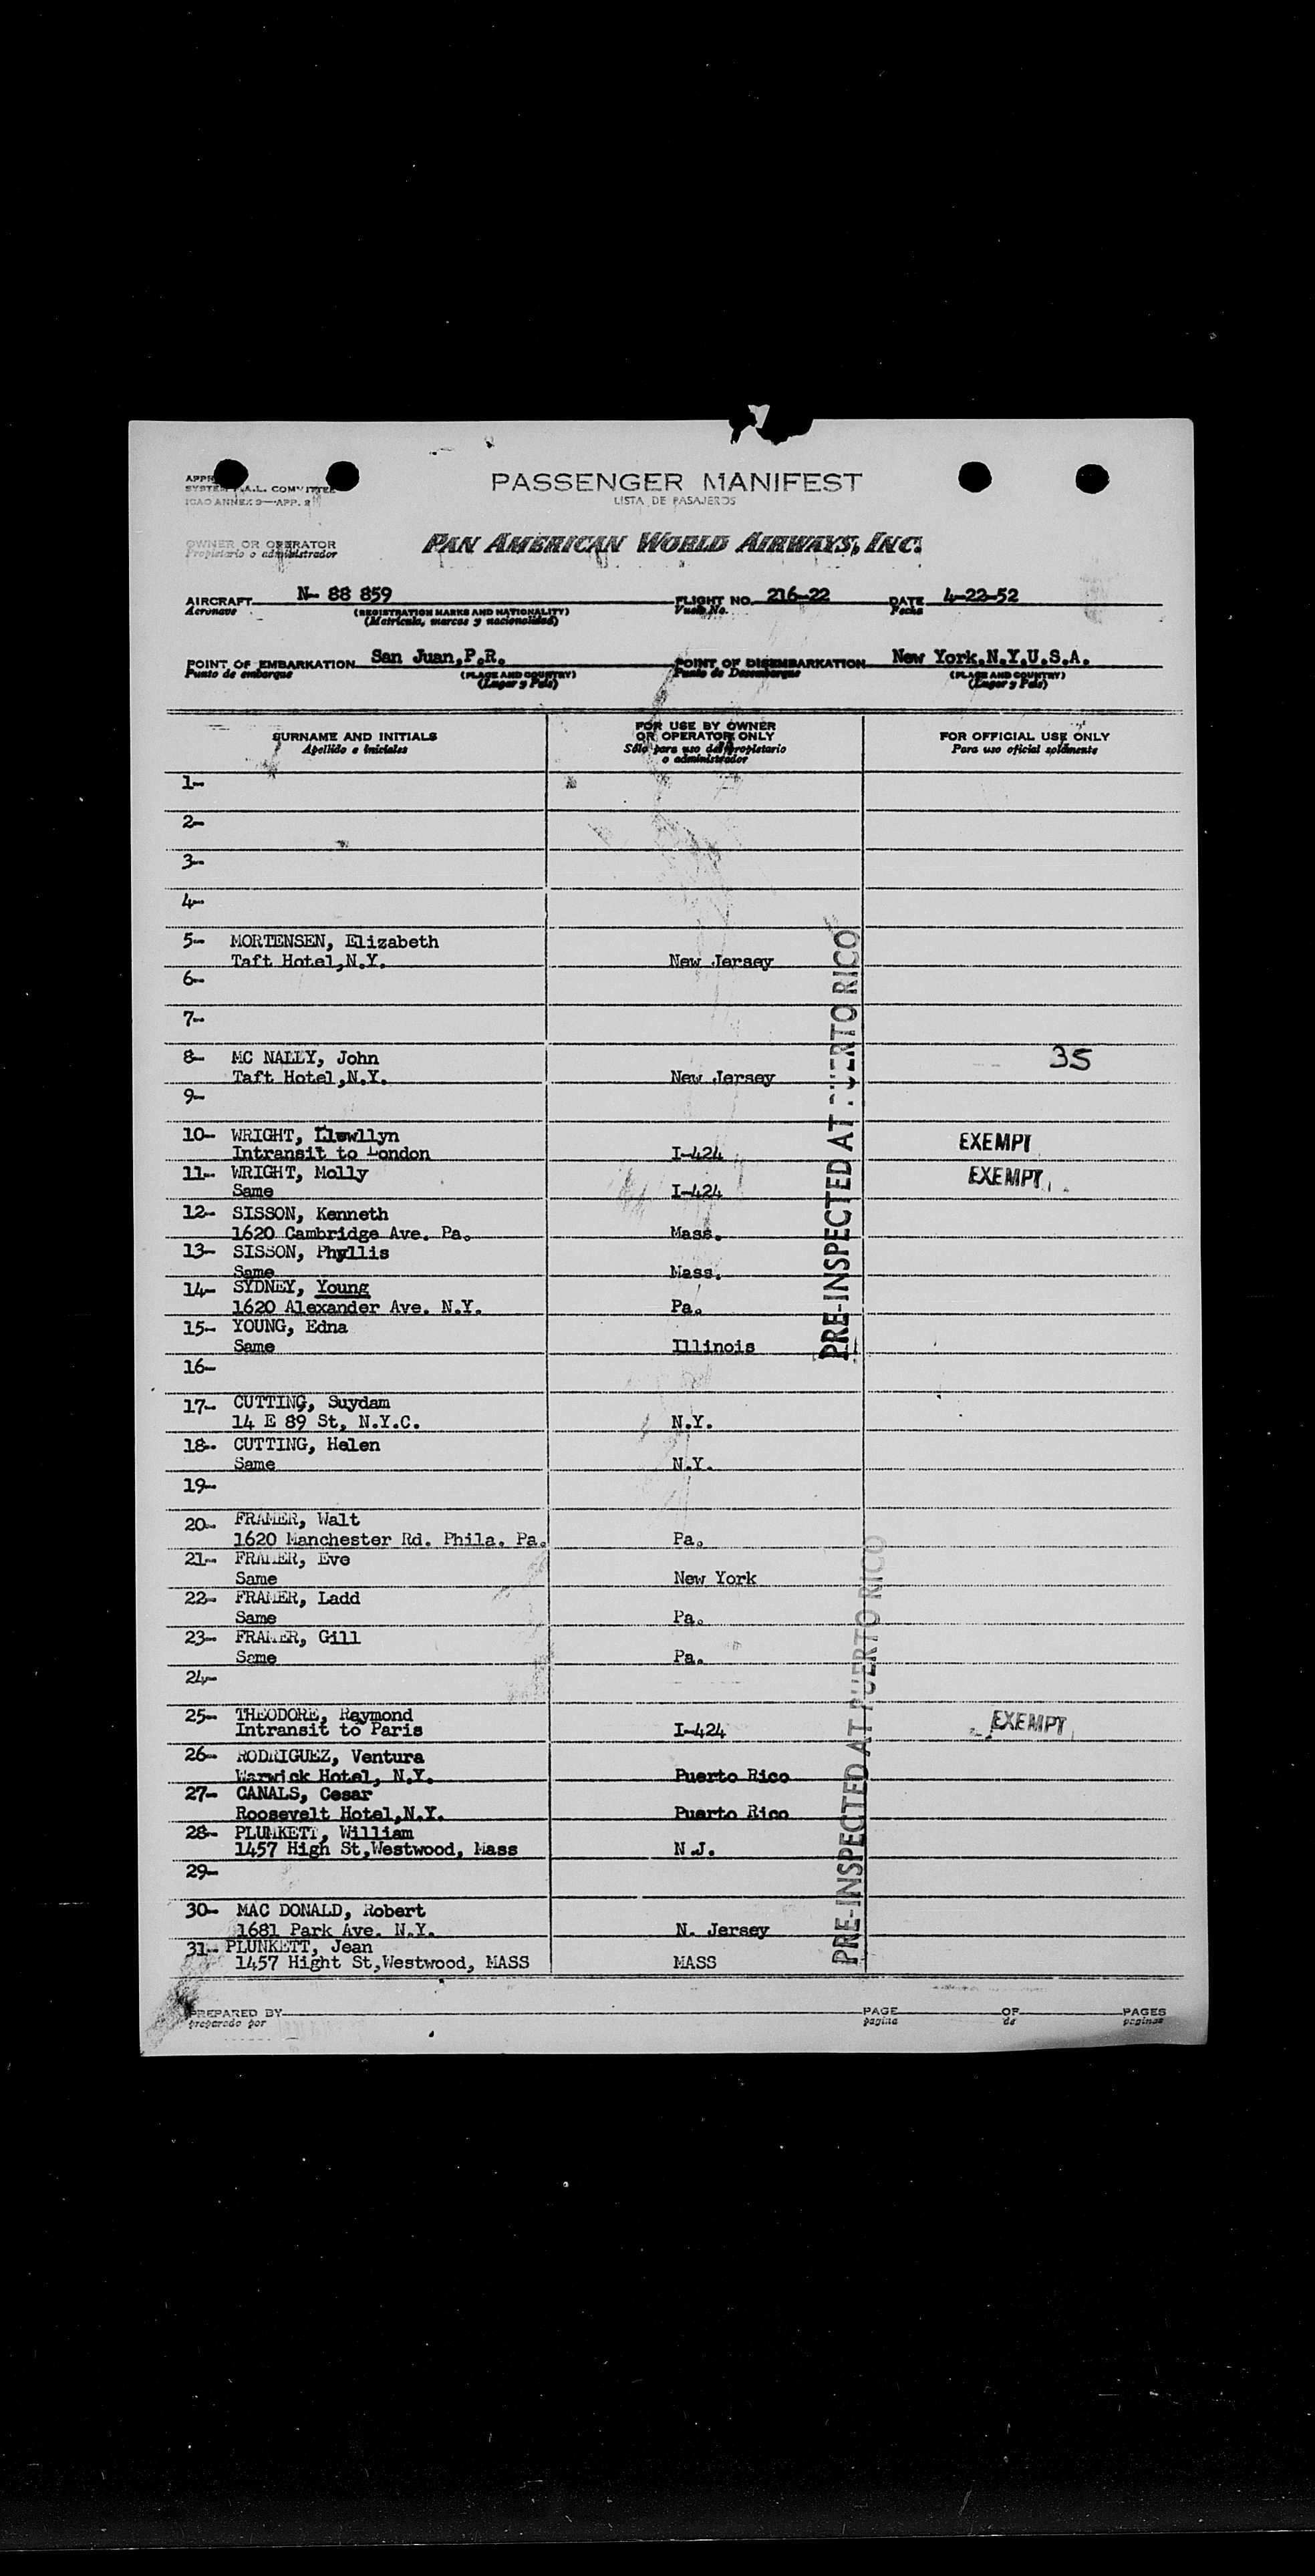 PASSENGER MANIFEST
LISTA DE PASAJEROS
SYSTEM A.L. COMMITTEE
ICAO ANNEX 9—APP. 2
OWNER OR OPERATOR
Propietario o administrador
PAN AMERICAN WORLD AIRWAYS, INC.
AIRCRAFT N- 88 859 FLIGHT NO. 216-22 DATE 4-22-52
Aeronave (REGISTRATION MARKS AND NATIONALITY) Vuelo No. Fecha
(Matricula, marcas y nacionalidad)
POINT OF EMBARKATION San Juan,P.R. POINT OF DISEMBARKATION New York.N.Y.U.S.A.
Punto de embarque (PLACE AND COUNTRY) Punto de Desembarque (PLACE AND COUNTRY)
(Lugar y País) (Lugar y País)
SURNAME AND INITIALS
Apellido e iniciales
FOR USE BY OWNER
OR OPERATOR ONLY
Sólo para uso del propietario
o administrador
FOR OFFICIAL USE ONLY
Para uso oficial solamente
1-
2-
3-
4-
5- MORTENSEN, Elizabeth
Taft Hotel,N.Y. New Jersey
6-
7-
8- MC NALLY, John 35
Taft Hotel,N.Y. New Jersey
9-
10- WRIGHT, Llewllyn EXEMPT
Intransit to London I-424
11- WRIGHT, Molly EXEMPT
Same I-424
12- SISSON, Kenneth
1620 Cambridge Ave. Pa. Mass.
13- SISSON, Phyllis
Same Mass.
14- SYDNEY, Young
1620 Alexander Ave. N.Y. Pa.
15- YOUNG, Edna
Same Illinois
16-
17- CUTTING, Suydam
14 E 89 St, N.Y.C. N.Y.
18- CUTTING, Helen
Same N.Y.
19-
20- FRAMER, Walt
1620 Manchester Rd. Phila. Pa. Pa.
21- FRAMER, Eve
Same New York
22- FRAMER, Ladd
Same Pa.
23- FRAMER, Gill
Same Pa.
24-
25- THEODORE, Raymond EXEMPT
Intransit to Paris I-424
26- RODRIGUEZ, Ventura
Warwick Hotel, N.Y. Puerto Rico
27- CANALS, Cesar
Roosevelt Hotel,N.Y. Puerto Rico
28- PLUNKETT, William
1457 High St,Westwood, Mass N.J.
29-
30- MAC DONALD, Robert
1681 Park Ave. N.Y. N. Jersey
31- PLUNKETT, Jean
1457 Hight St,Westwood, MASS MASS
PRE-INSPECTED AT PUERTO RICO
PRE-INSPECTED AT PUERTO RICO
PREPARED BY PAGE OF PAGES
preparado por pagina de paginas